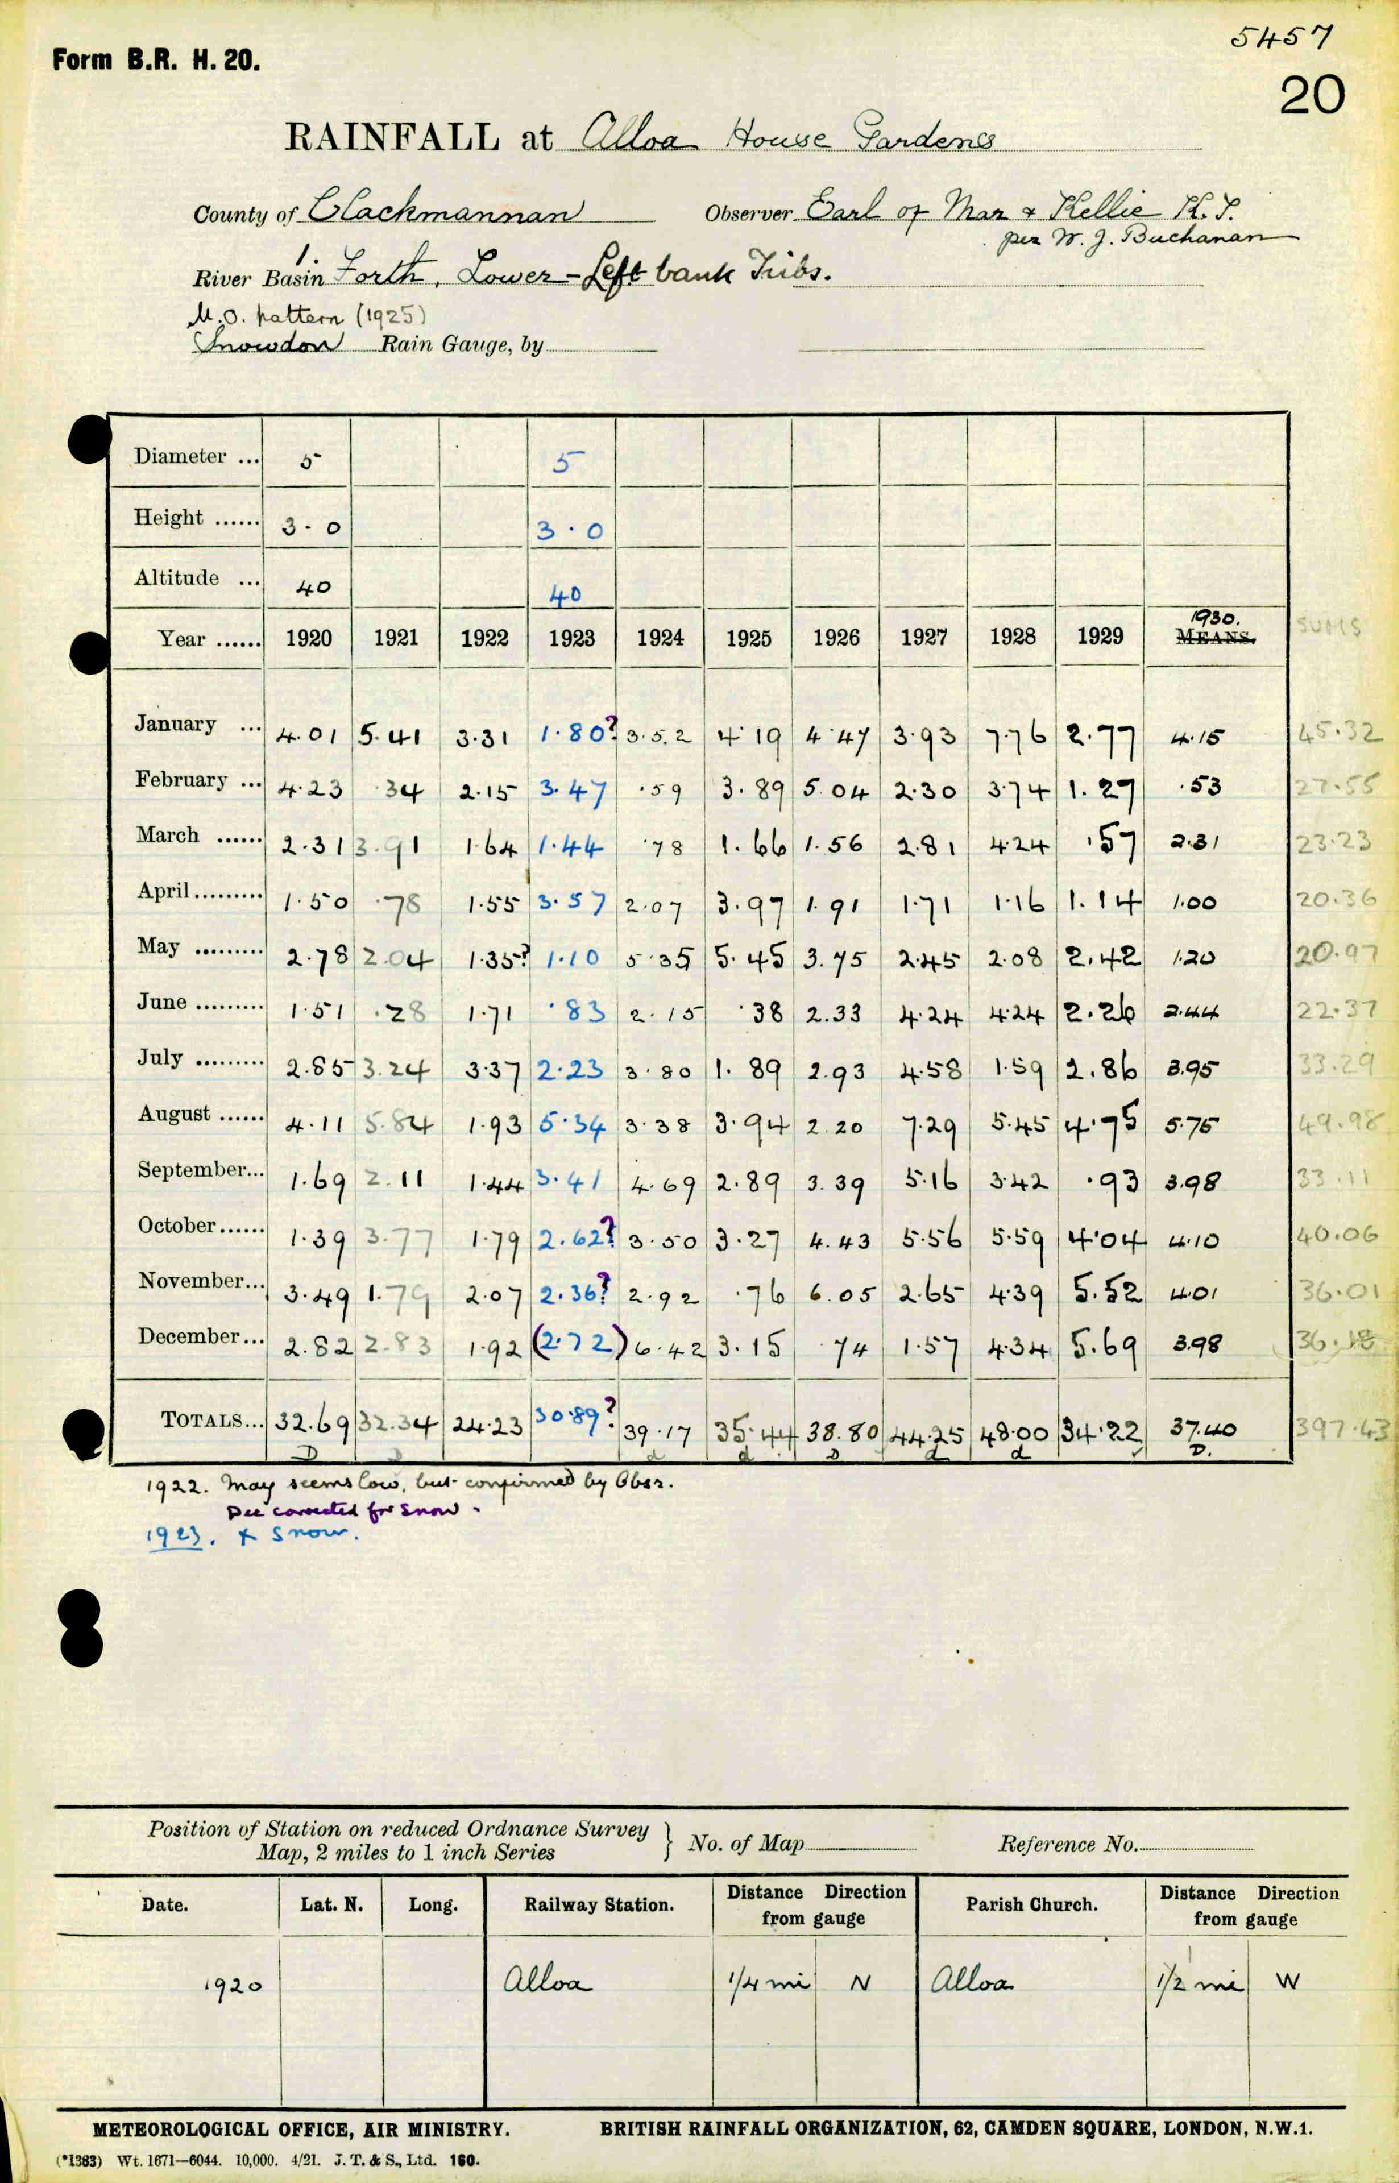 5457
Form B.R. H. 20.
20
RAINFALL at Alloa House Gardens
County of Clackmannan Observer Earl of Mar & Kellie K.T.
per W. J. Buchanan
River Basin Forth, Lower - Left bank Tribs.
M.O. pattern (1925)
Snowdon Rain Gauge, by
Diameter ... 5 5
Height ...... 3.0 3.0
Altitude ... 40 40
1930.
Year ...... 1920 1921 1922 1923 1924 1925 1926 1927 1928 1929 MEANS. SUMS
January ... 4.01 5.41 3.31 1.80? 3.52 4.19 4.47 3.93 7.76 2.77 4.15 45.32
February ... 4.23 .34 2.15 3.47 .59 3.89 5.04 2.30 3.74 1.27 .53 27.55
March ...... 2.31 3.91 1.64 1.44 .78 1.66 1.56 2.81 4.24 .57 2.31 23.23
April ......... 1.50 .78 1.55 3.57 2.07 3.97 1.91 1.71 1.16 1.14 1.00 20.36
May ......... 2.78 2.04 1.35? 1.10 5.35 5.45 3.75 2.45 2.08 2.42 1.20 20.97
June ......... 1.51 .28 1.71 .83 2.15 .38 2.33 4.24 4.24 2.26 2.44 22.37
July ......... 2.85 3.24 3.37 2.23 3.80 1.89 2.93 4.58 1.59 2.86 3.95 33.29
August ...... 4.11 5.84 1.93 5.34 3.38 3.94 2.20 7.29 5.45 4.75 5.75 49.98
September... 1.69 2.11 1.44 3.41 4.69 2.89 3.39 5.16 3.42 .93 3.98 33.11
October...... 1.39 3.77 1.79 2.62? 3.50 3.27 4.43 5.56 5.59 4.04 4.10 40.06
November... 3.49 1.79 2.07 2.36? 2.92 .76 6.05 2.65 4.39 5.52 4.01 36.01
December... 2.82 2.83 1.92 (2.72) 6.42 3.15 .74 1.57 4.34 5.69 3.98 36.18
TOTALS... 32.69 32.34 24.23 30.89? 39.17 35.44 38.80 44.25 48.00 34.22 37.40 397.43
D D d d D d d D.
1922. May seems low, but confirmed by Obsr.
Dec corrected for snow.
1923. + Snow.
Position of Station on reduced Ordnance Survey
Map, 2 miles to 1 inch Series } No. of Map Reference No.
Date. Lat. N. Long. Railway Station. Distance Direction from gauge Parish Church. Distance Direction from gauge
1920 Alloa 1/4 mi N Alloa 1/2 mi W
METEOROLOGICAL OFFICE, AIR MINISTRY. BRITISH RAINFALL ORGANIZATION, 62, CAMDEN SQUARE, LONDON, N.W.1.
(*1383) Wt. 1671—6044. 10,000. 4/21. J. T. & S., Ltd. 160.